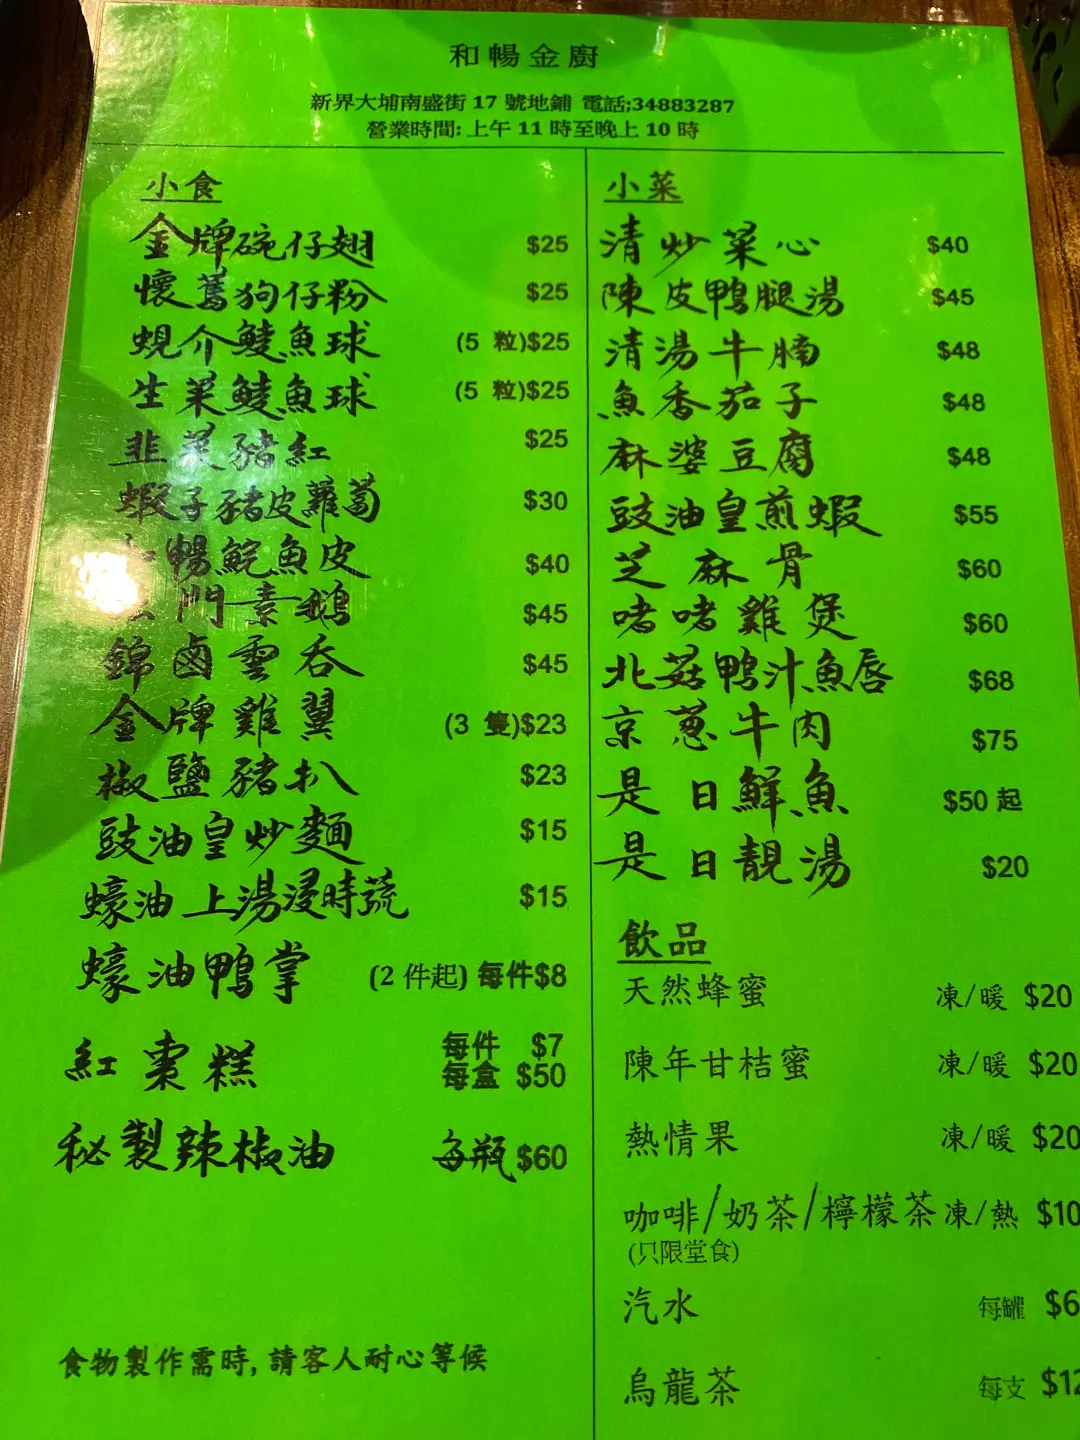 和暢金廚
新界大埔南盛街 17 號地鋪 電話;34883287
營業時間: 上午 11 時至晚上 10 時
小食
金牌碗仔翅 $25
懷舊狗仔粉 $25
蜆介鯪魚球 (5 粒)$25
生菜鯪魚球 (5 粒)$25
韭菜豬紅 $25
蝦子豬皮蘿蔔 $30
暢鯇魚皮 $40
門素鵝 $45
錦鹵雲吞 $45
金牌雞翼 (3 隻)$23
椒鹽豬扒 $23
豉油皇炒麵 $15
蠔油上湯浸時蔬 $15
蠔油鴨掌 (2 件起) 每件$8
紅棗糕 每件 $7
每盒 $50
秘製辣椒油 每瓶 $60
食物製作需時, 請客人耐心等候
小菜
清炒菜心 $40
陳皮鴨腿湯 $45
清湯牛腩 $48
魚香茄子 $48
麻婆豆腐 $48
豉油皇煎蝦 $55
芝麻骨 $60
啫啫雞煲 $60
北菇鴨汁魚唇 $68
京蔥牛肉 $75
是日鮮魚 $50 起
是日靚湯 $20
飲品
天然蜂蜜 凍/暖 $20
陳年甘桔蜜 凍/暖 $20
熱情果 凍/暖 $20
咖啡/奶茶/檸檬茶 凍/熱 $10
(只限堂食)
汽水 每罐 $6
烏龍茶 每支 $12